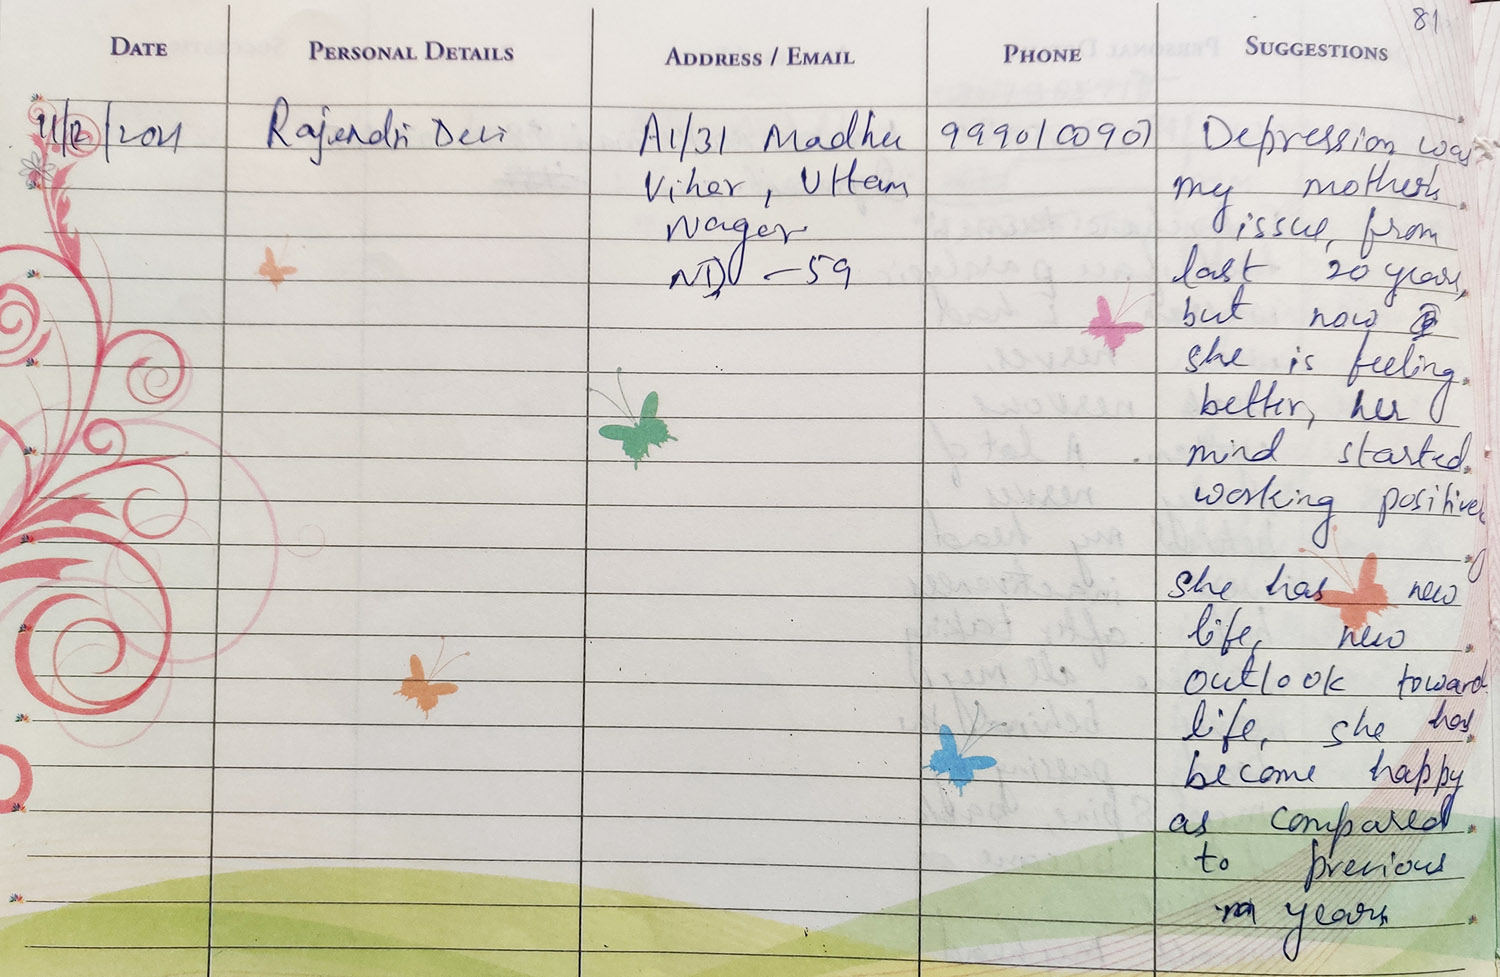 81
DATE PERSONAL DETAILS ADDRESS / EMAIL PHONE SUGGESTIONS
11/12/2021 Rajendri Devi A1/31 Madhu 9990100907 Depression was
Viher, Uttam my mothers
Nager issue, from
ND - 59 last 20 years,
but now
she is feeling
better, her
mind started
working positively
she has new
life, new
outlook toward
life, she has
become happy
as compared
to previous
years